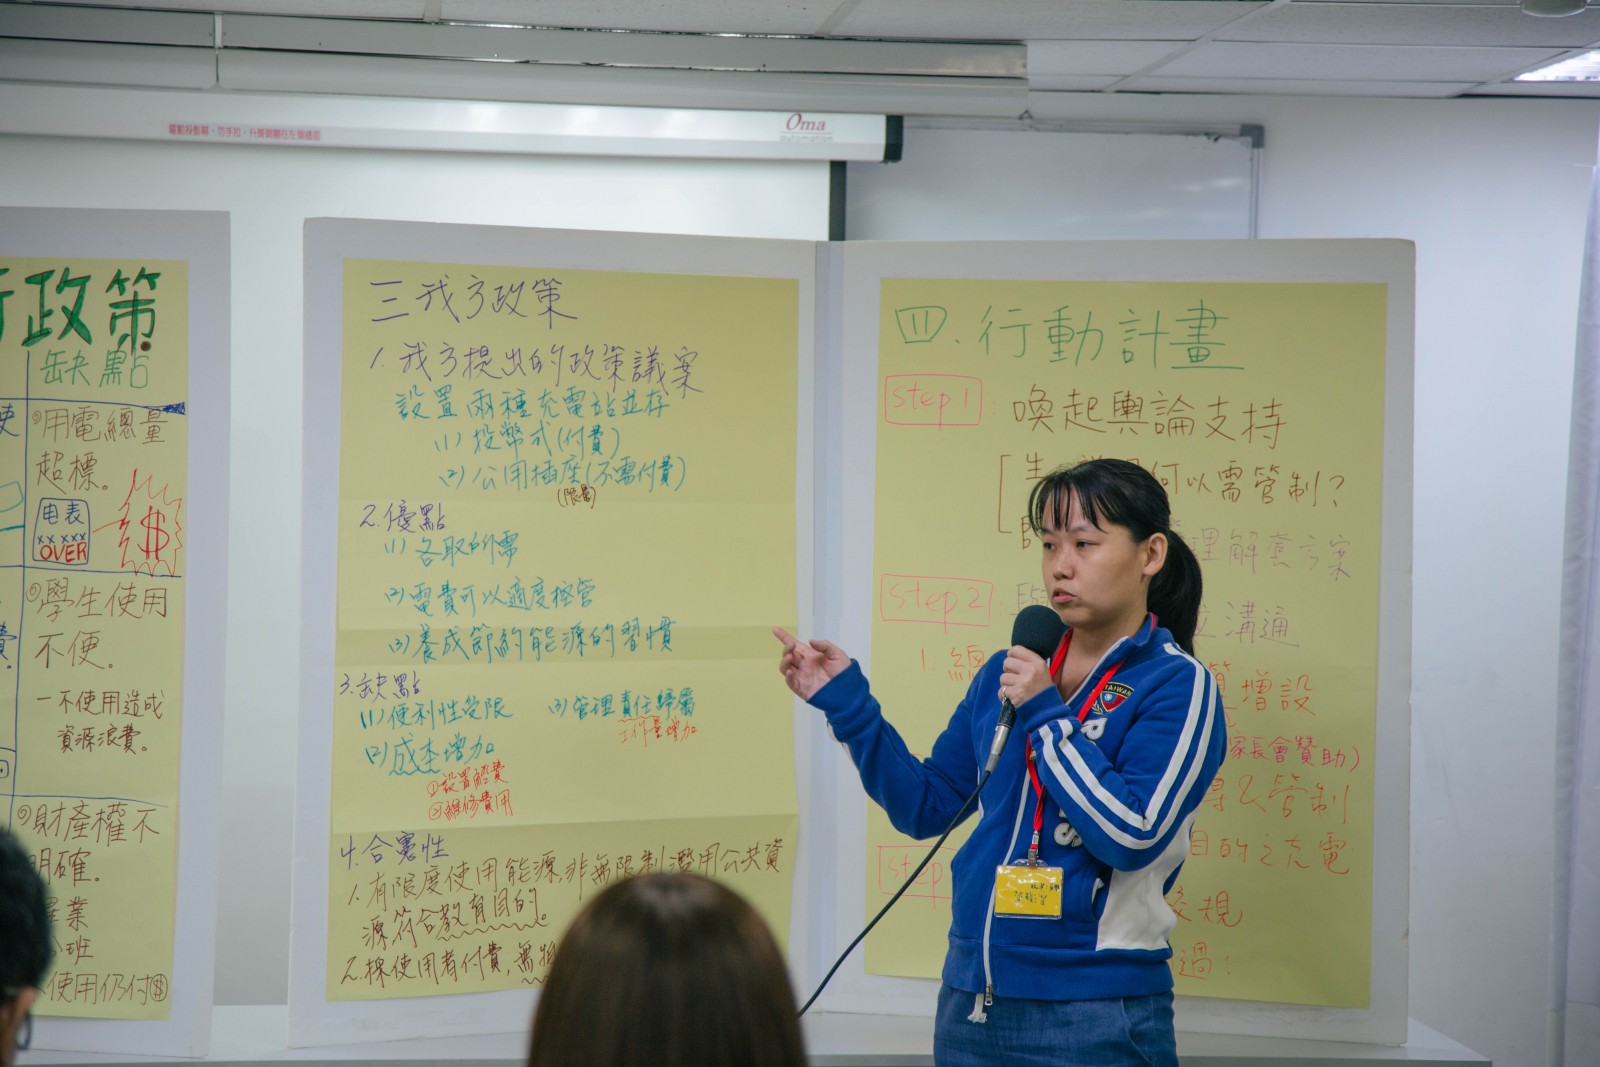 電動投影幕，勿手扣，升降開關在左側牆面
Oma
政策
缺點
用電總量
超標。
电表
xx xxx
OVER
$
學生使用
不便。
一不使用造成
資源浪費。
財產權不
明確。
業
班
使用仍付$
三我方政策
1.我方提出的政策議案
設置兩種充電站並存
(1)投幣式(付費)
(2)公用插座(不需付費)
(限量)
2.優點
(1)各取所需
(2)電費可以適度控管
(3)養成節約能源的習慣
3.缺點
(1)便利性受限
(3)管理責任歸屬
工作量增加
(2)成本增加
①設置經費
②維修費用
4.合憲性
1.有限度使用能源,非無限制濫用公共資
源符合教育目的。
2.採使用者付費,無
四.行動計畫
step 1
喚起輿論支持
何以需管制?
理解套方案
step 2
溝通
1.總
增設
家長會贊助)
管制
目的之充電
step
校規
過!
TAIWAN